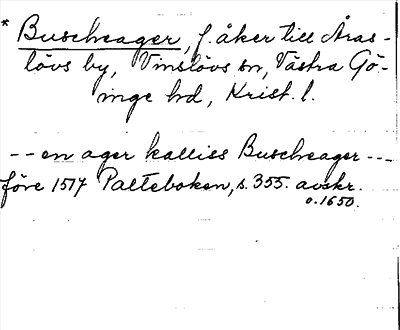 * Buscheager, f. åker till Åras-
lövs by, Vinslövs sn, Västra Gö-
inge hd, Krist. l.
-- en ager kalliss Buscheager ---
före 1517 Palteboken, s. 355. avskr.
o. 1650.